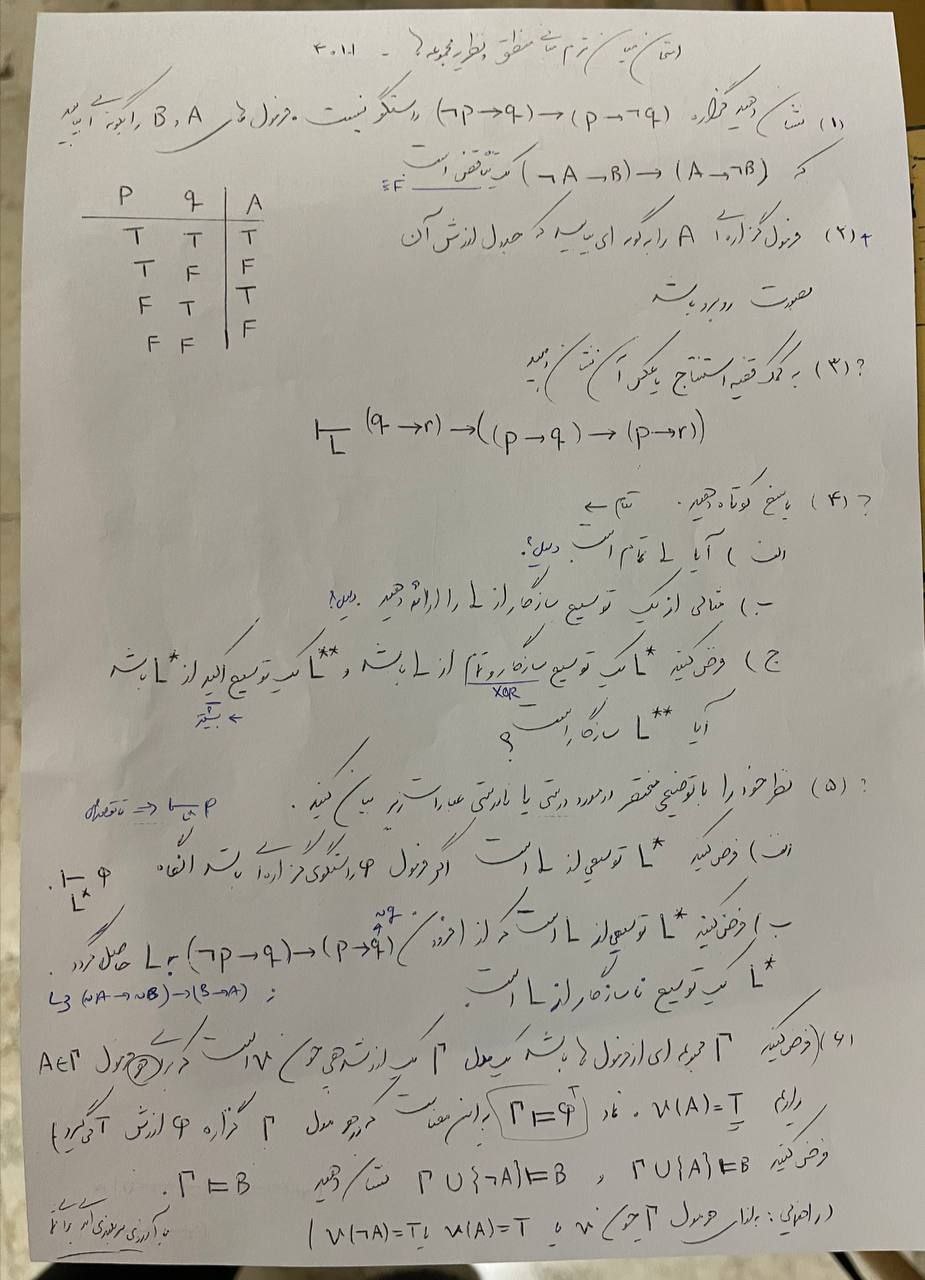 امتحان میان ترم مبانی منطق و نظریه مجموعه ها - ۴۰۱۱
(۱) نشان دهید گزاره (¬p→q)→(p→¬q) راستگو نیست. فرمول های A و B را بگونه ای بیابید
که (¬A→B)→(A→¬B) یک تناقض است
≡F
(۲) فرمول گزاره ای A را به گونه ای بیابید که جدول ارزش آن
بصورت روبرو باشد
P q A
T T T
T F F
F T T
F F F
? (۳) به کمک قضیه استنتاج یا عکس آن نشان دهید
⊢L (q→r)→((p→q)→(p→r))
? (۴) پاسخ کوتاه دهید. تام ←
الف) آیا L تمام است. دلیل؟
ب) مثالی از یک توسیع سازگار از L را ارائه دهید. دلیل؟
ج) فرض کنید L* یک توسیع سازگار و تام از L باشد و L** یک توسیع اکید از L* باشد
XOR
آیا L** سازگار است؟
? (۵) نظر خود را با توضیحی مختصر در مورد درستی یا نادرستی عبارات زیر بیان کنید.
الف) فرض کنید L* توسیعی از L است اگر فرمول φ راستگوی گزاره ای باشد آنگاه ⊢L* φ.
ب) فرض کنید L* توسیعی از L است که از افزودن (¬p→q)→(p→q) به L حاصل گردد.
~q
L* یک توسیع ناسازگار از L است.
L3 (~A→~B)→(B→A) ;
(۶) (فرض کنید Γ مجموعه ای از فرمول ها باشد یک مدل Γ یک ارزشدهی چون v است که برای هر فرمول A∈Γ
داریم v(A)=T. نماد Γ⊨φ به این معناست که در هر مدل Γ گزاره φ ارزش T می گیرد)
فرض کنید Γ∪{A}⊨B و Γ∪{¬A}⊨B نشان دهید Γ⊨B.
(راهنمایی: به ازای هر مدل Γ چون v یا v(A)=T یا v(¬A)=T)
با آرزوی سربلندی